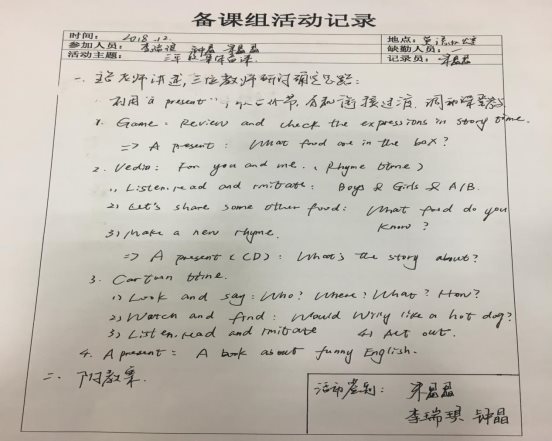 备课组活动记录
时间： 2018.12. 地点：
参加人员： 李瑞琪 钟晶 宋晶晶 缺勤人员： /
活动主题： 三年级集体备课 记录员： 宋晶晶
一. 老师讲述，三位教师研讨确定思路：
利用"a present" 环节，衔接过渡，调动
1. Game: Review and check the expressions in story time.
=> A present: What food are in the box?
2. Vedio: For you and me. (Rhyme time)
1) Listen, read and imitate: Boys & Girls & A/B.
2) Let's share some other food: What food do you
know?
3) Make a new rhyme.
=> A present (CD): What's the story about?
3. Cartoon time.
1) Look and say: Who? Where? What? How?
2) Watch and find: Would Willy like a hot dog?
3) Listen, read and imitate 4) Act out.
4. A present: A book about funny English.
二. 附教案.
活动签到： 宋晶晶
李瑞琪 钟晶